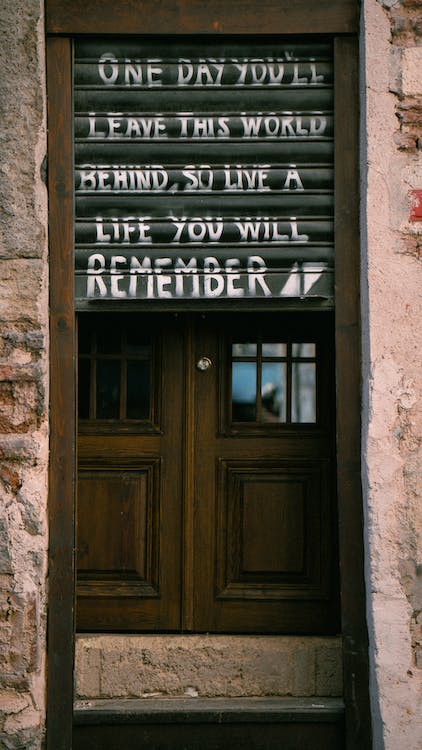 ONE DAY YOU'LL
LEAVE THIS WORLD
BEHIND, SO LIVE A
LIFE YOU WILL
REMEMBER